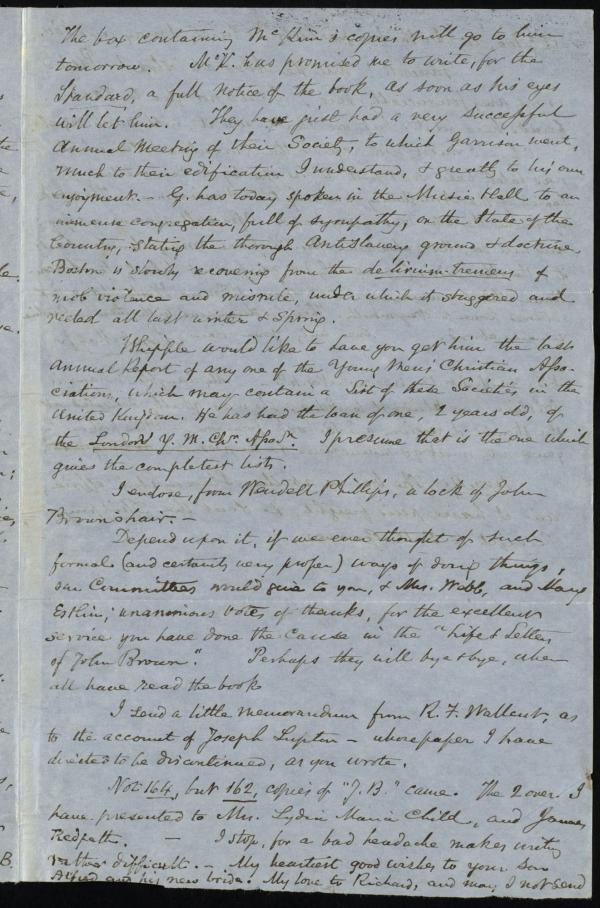 The box containing McKim's copies will go to him
tomorrow. McK. has promised me to write, for the
Standard, a full notice of the book, as soon as his eyes
will let him. They have just had a very successful
Annual Meeting of their Society, to which Garrison went,
much to their edification I understand, & greatly to his own
enjoyment. - G. has today spoken in the Music Hall to an
immense congregation, full of sympathy, on the State of the
Country, stating the thorough Antislavery ground & doctrine
Boston is slowly recovering from the delirium-tremens of
mob violence and misrule, under which it staggered and
reeled all last winter & Spring.
Whipple would like to have you get him the last
Annual Report of any one of the Young Men's Christian Asso-
ciations, which may contain a List of these Societies in the
United Kingdom. He has had the loan of one, 2 years old, of
the London Y. M. Chr. Assocn. I presume that is the one which
gives the completest lists.
I enclose, from Wendell Phillips, a lock of John
Brown's hair. -
Depend upon it, if we ever thought of such
formal (and certainly very proper) ways of doing things,
our Committees would give to you, & Mrs. Webb, and Mary
Estlin, unanimous votes of thanks, for the excellent
service you have done the cause in the "Life & Letters
of John Brown". Perhaps they will bye & bye, when
all have read the book
I send a little memorandum from R. F. Wallcut, as
to the account of Joseph Lupton - whose paper I have
directed to be discontinued, as you wrote.
Not 164, but 162, copies of "J. B." came. The 2 over I
have presented to Mrs. Lydia Maria Child, and James
Redpath. - I stop, for a bad headache makes writing
rather difficult. - My heartiest good wishes to your son
Alfred and his new bride. My love to Richard, and may I not send